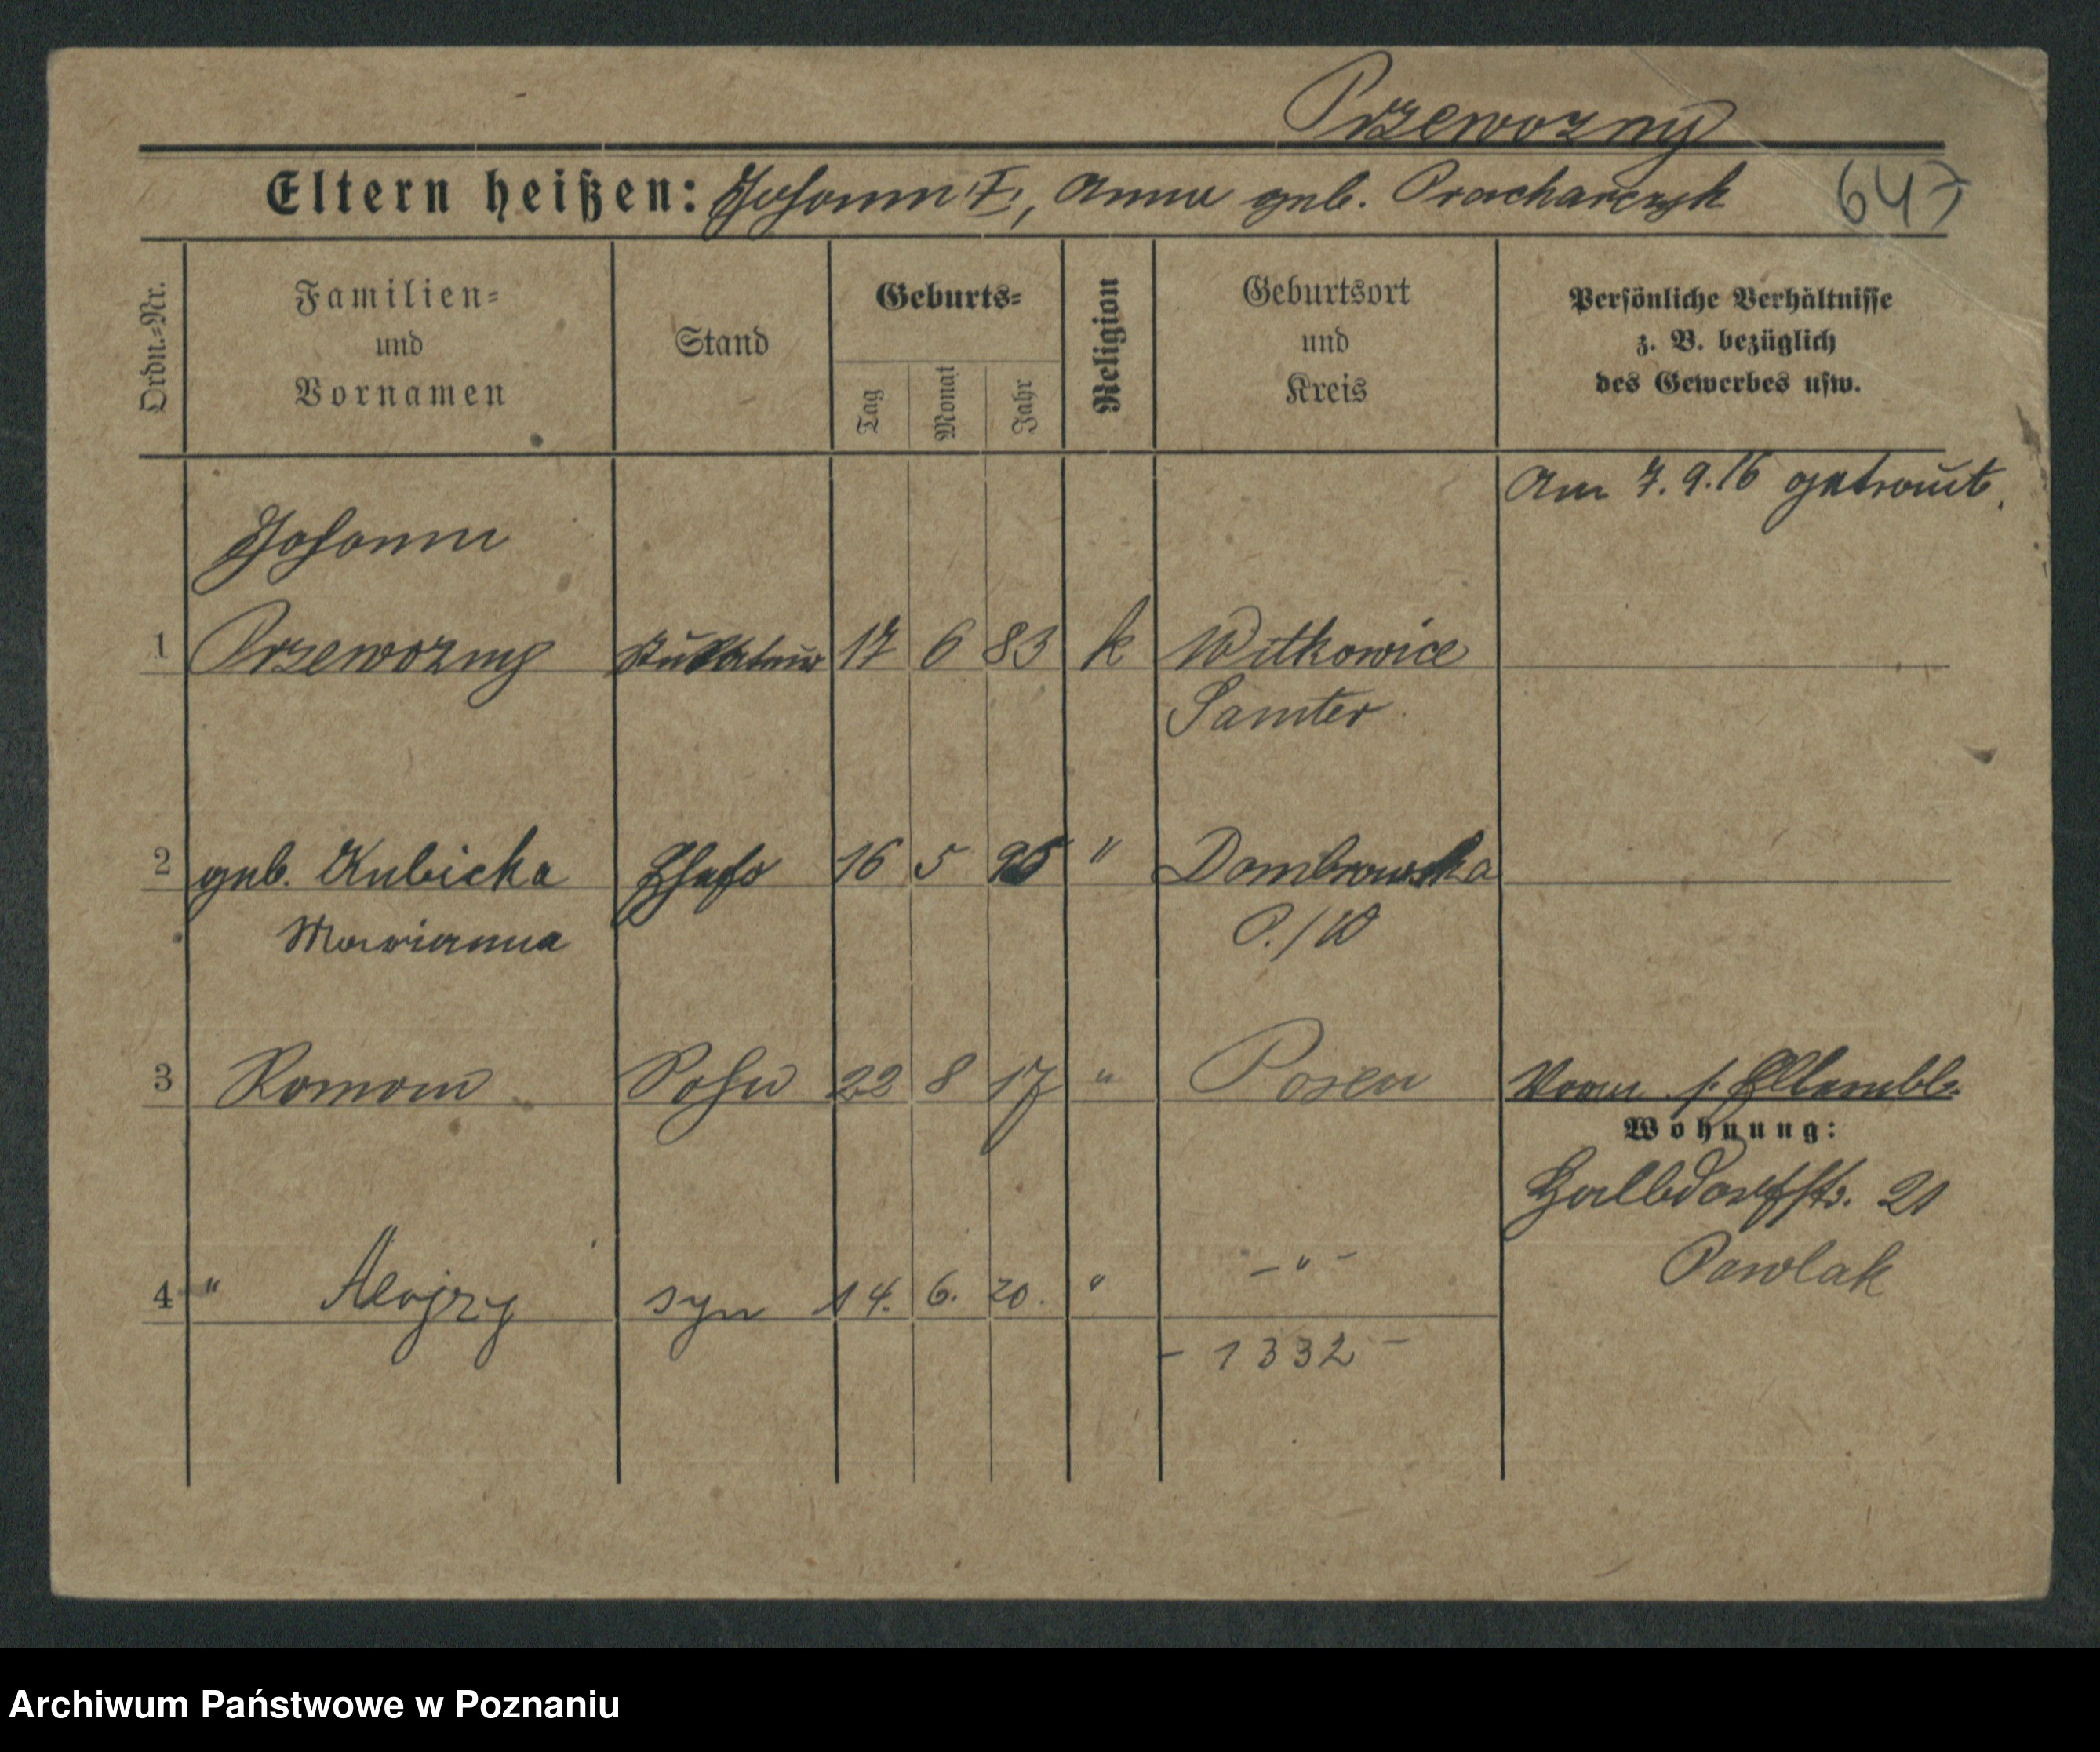 Przewozny
Eltern heißen: Johann I, Anna geb. Pracharczyk
647
Ordn.-Nr.
Familien-
und
Vornamen
Stand
Geburts-
Tag
Monat
Jahr
Religion
Geburtsort
und
Kreis
Persönliche Verhältnisse
z. B. bezüglich
des Gewerbes usw.
Am 7.9.16 getraut.
Johann
1 Przewozny 17 6 83 k Witkowice
Samter
2 geb. Kubicka Ehefr 16 5 95 " Dombrowska
P./W
Marianna
3 Roman Sohn 22 8 17 " Posen
Wohnung:
Halbdorfstr. 21
Pawlak
4 " Alojzy syn 14. 6. 20. " - " -
- 1332 -
Archiwum Państwowe w Poznaniu